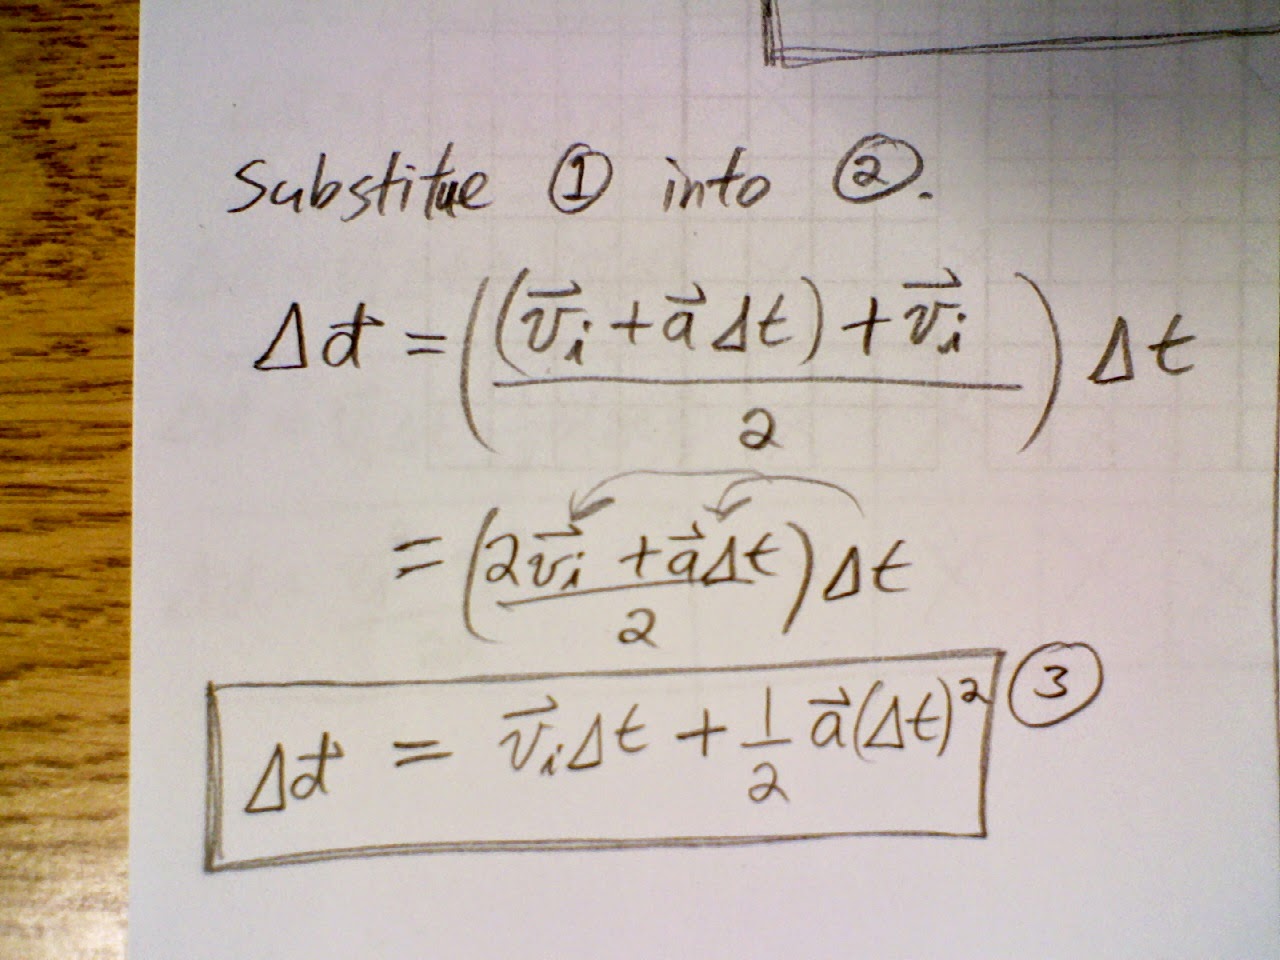 Substitue ① into ②.
Δd⃗ = ((v⃗ᵢ + a⃗ Δt) + v⃗ᵢ / 2) Δt
= (2v⃗ᵢ + a⃗Δt / 2) Δt
Δd⃗ = v⃗ᵢΔt + 1/2 a⃗(Δt)² ③